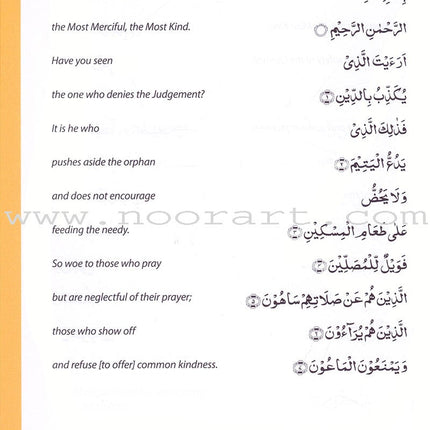 the Most Merciful, the Most Kind. الرَّحْمٰنِ الرَّحِيْمِ ۝
Have you seen اَرَءَيْتَ الَّذِيْ
the one who denies the Judgement? يُكَذِّبُ بِالدِّيْنِ ۝١
It is he who فَذٰلِكَ الَّذِيْ
pushes aside the orphan يَدُعُّ الْيَتِيْمَ ۝٢
and does not encourage وَلَا يَحُضُّ
www.noorart.com
feeding the needy. عَلٰى طَعَامِ الْمِسْكِيْنِ ۝٣
So woe to those who pray فَوَيْلٌ لِّلْمُصَلِّيْنَ ۝٤
but are neglectful of their prayer; الَّذِيْنَ هُمْ عَنْ صَلَاتِهِمْ سَاهُوْنَ ۝٥
those who show off الَّذِيْنَ هُمْ يُرَآءُوْنَ ۝٦
and refuse [to offer] common kindness. وَيَمْنَعُوْنَ الْمَاعُوْنَ ۝٧